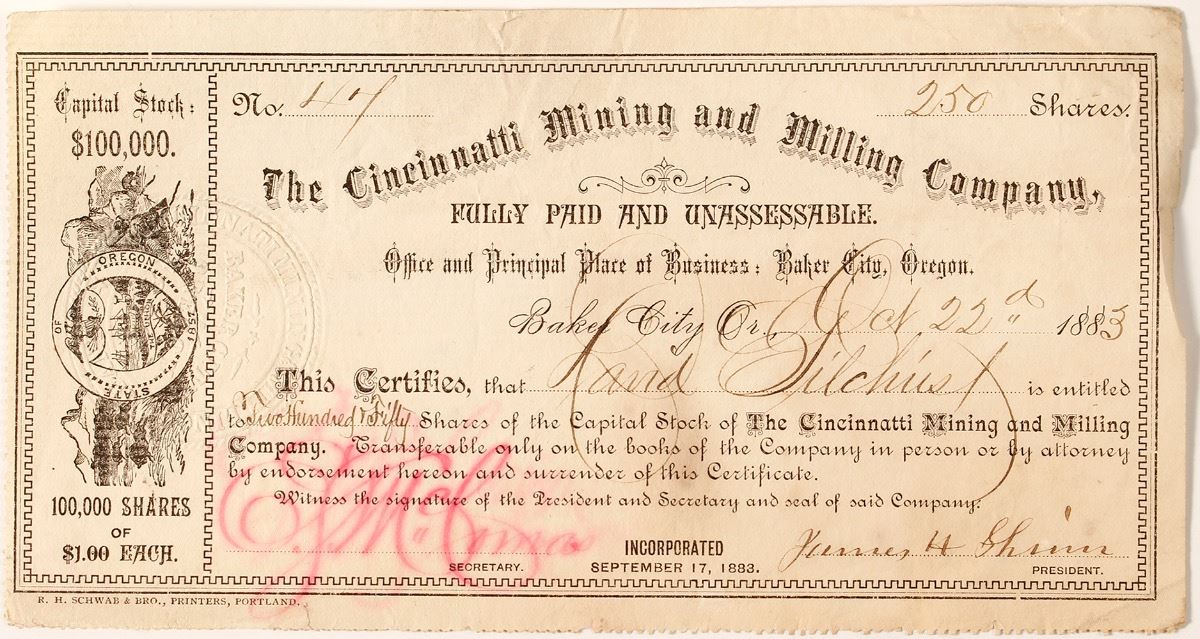 Capital Stock:
$100,000.
STATE OF OREGON
1859
100,000 SHARES
OF
$1.00 EACH.
No. 47
250 Shares.
The Cincinnatti Mining and Milling Company,
FULLY PAID AND UNASSESSABLE.
Office and Principal Place of Business: Baker City, Oregon.
Baker City Or., Oct. 22d 1883
This Certifies, that David Gilchrist is entitled
to Two Hundred & Fifty Shares of the Capital Stock of The Cincinnatti Mining and Milling
Company. Transferable only on the books of the Company in person or by attorney
by endorsement hereon and surrender of this Certificate.
Witness the signature of the President and Secretary and seal of said Company.
James H Shinn
SECRETARY.
INCORPORATED
SEPTEMBER 17, 1883.
PRESIDENT.
R. H. SCHWAB & BRO., PRINTERS, PORTLAND.